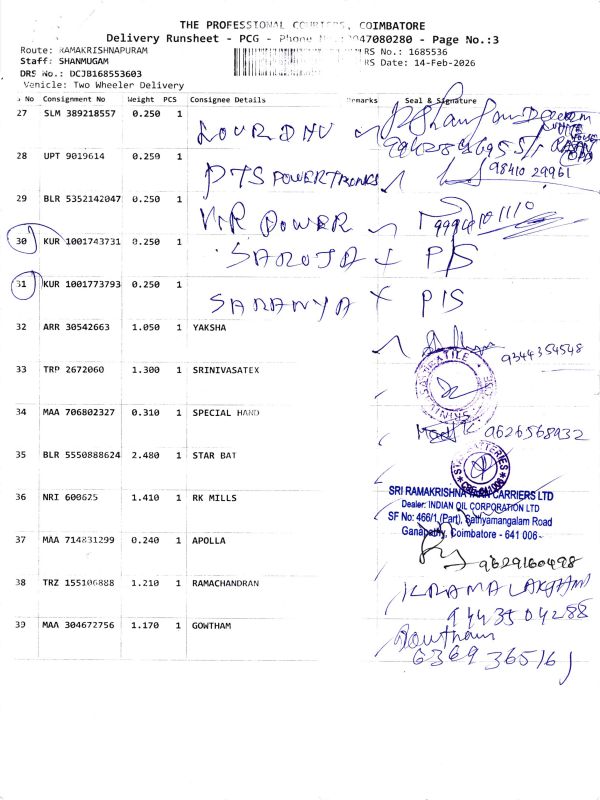 THE PROFESSIONAL COURIERS, COIMBATORE
Delivery Runsheet - PCG - Phone 047080280 - Page No.:3
Route: RAMAKRISHNAPURAM
RS No.: 1685536
Staff: SHANMUGAM
RS Date: 14-Feb-2026
DRS No.: DCJB168553603
Vehicle: Two Wheeler Delivery
No Consignment No Weight PCS Consignee Details Remarks Seal & Signature
27 SLM 389218557 0.250 1 LOURDHU
28 UPT 9019614 0.250 1 PTS POWERTRONKS 98410 29961
29 BLR 5352142047 0.250 1 VIR POWER 9994101110
30 KUR 1001743731 0.250 1 SAROJA X P/S
31 KUR 1001773793 0.250 1 SARANYA X P/S
32 ARR 30542663 1.050 1 YAKSHA 9344354548
33 TRP 2672060 1.300 1 SRINIVASATEX
34 MAA 706802327 0.310 1 SPECIAL HAND 9626568932
35 BLR 5550888624 2.480 1 STAR BAT
36 NRI 600625 1.410 1 RK MILLS
SRI RAMAKRISHNA CARRIERS LTD
Dealer: INDIAN OIL CORPORATION LTD
SF No: 466/1 (Part), Sathyamangalam Road
Ganapathy, Coimbatore - 641 006
37 MAA 714831299 0.240 1 APOLLA 9629160498
38 TRZ 155106888 1.210 1 RAMACHANDRAN
9443504288
39 MAA 304672756 1.170 1 GOWTHAM Gowtham
6369365161